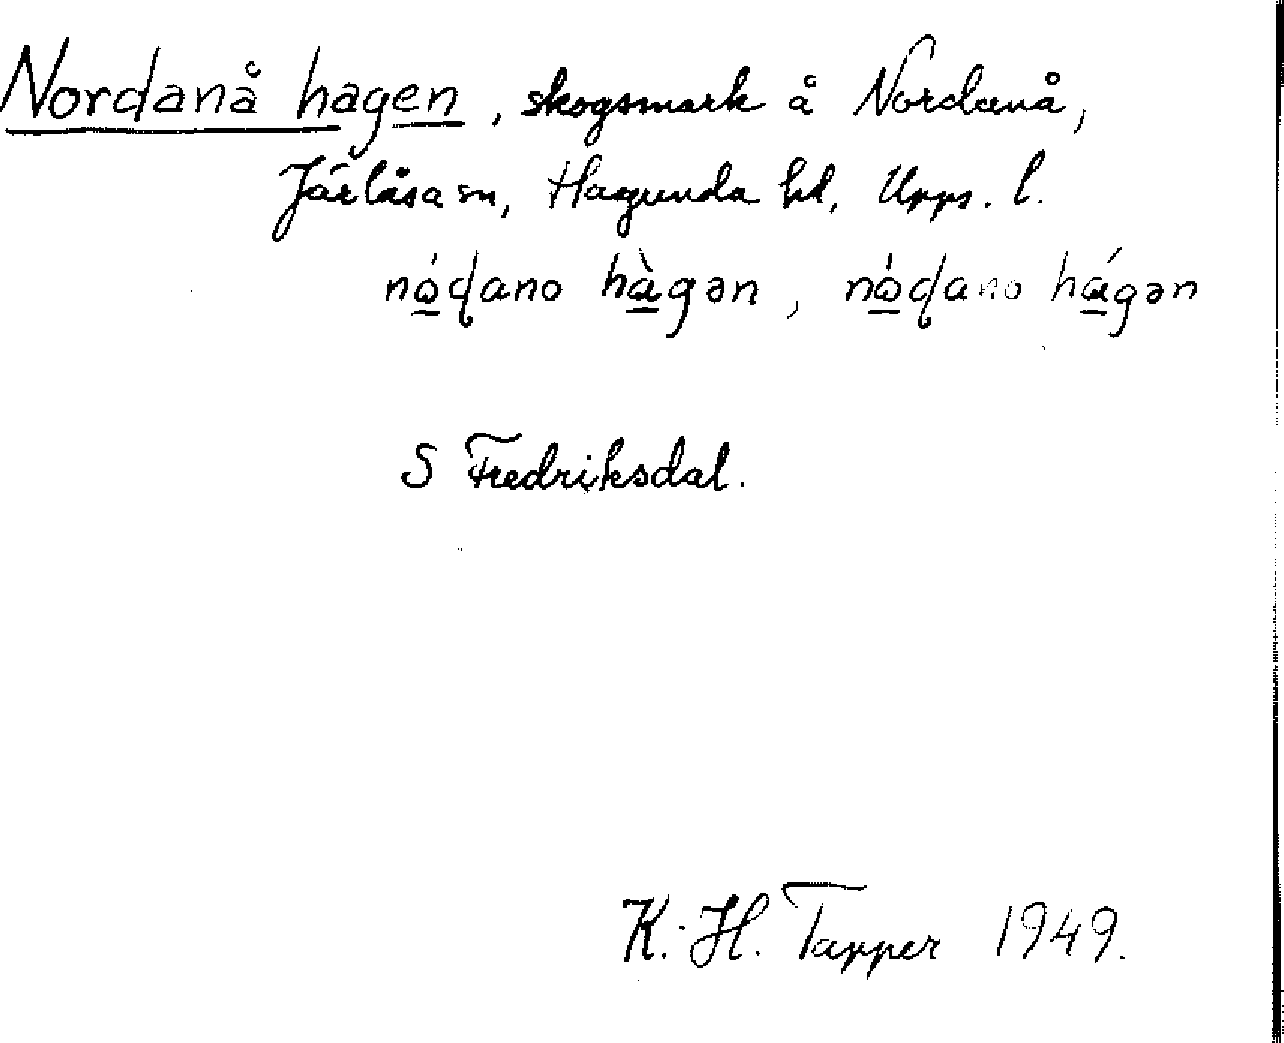 Nordanå hagen, skogsmark å Nordanå,
Järlåsa sn, Hagunda hd, Upps. l.
nó̲ɖano hà̲gən, nó̲ɖano há̲gən
S Fredriksdal.
K.-H. Tapper 1949.